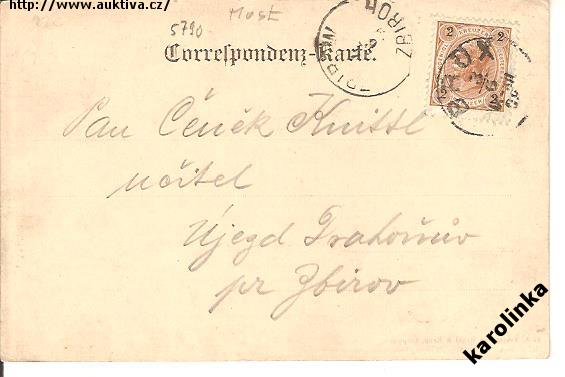 http://www.auktiva.cz/
5790 Most
Correspondenz-Karte.
ZBIROH
ZBIROW
2 KREUZER 2
BRÜX
Pan Čeněk Knittl
učitel
Újezd Trahoňův
pr Zbirov
karolinka